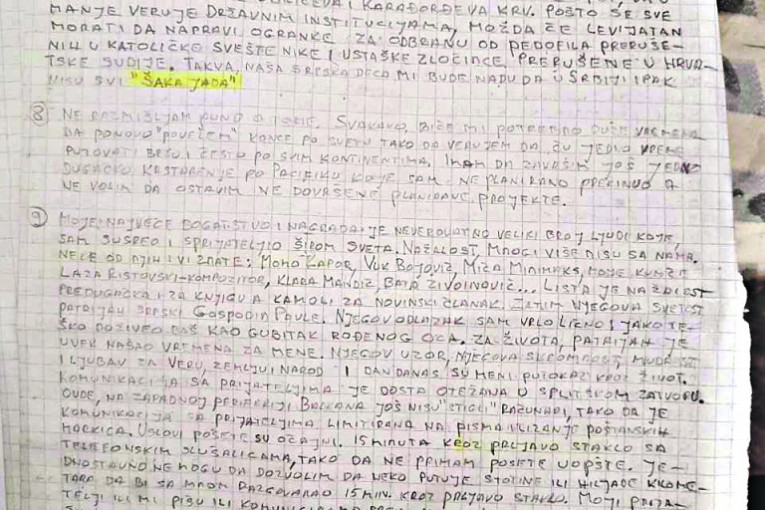 I KARAĐORĐEVA KRV. POŠTO SE SVE
MANJE VERUJE DRŽAVNIM INSTITUCIJAMA, MOŽDA ĆE LEVIJATAN
MORATI DA NAPRAVI OGRANKE ZA ODBRANU OD PEDOFILA PRERUŠE-
NIH U KATOLIČKE SVEŠTENIKE I USTAŠKE ZLOČINCE, PRERUŠENE U HRVA-
TSKE SUDIJE. TAKVA, NAŠA SRPSKA DECA MI BUDE NADU DA U SRBIJI IPAK
NISU SVI "ŠAKA JADA"
8) NE RAZMIŠLJAM PUNO O TOME. SVAKAKO, BIĆE MI POTREBNO DUŽE VREMENA
DA PONOVO "POVEŽEM" KONCE PO SVETU TAKO DA VERUJEM DA ĆU JEDNO VREME
PUTOVATI BRZO I ČESTO PO SVIM KONTINENTIMA. IMAM DA ZAVRŠIM JOŠ JEDNO
DUGAČKO KRSTARENJE PO PACIFIKU KOJE SAM NEPLANIRANO PREKINUO A
NE VOLIM DA OSTAVIM NE DOVRŠENE PLANIRANE PROJEKTE.
9) MOJE NAJVEĆE BOGATSTVO I NAGRADA JE NEVEROVATNO VELIKI BROJ LJUDI KOJE
SAM SUSREO I SPRIJATELJIO ŠIROM SVETA. NAŽALOST, MNOGI VIŠE NISU SA NAMA.
NEKE OD NJIH I VI ZNATE: MOMO KAPOR, VUK BOJOVIĆ, MIĆA MINIMAKS, MOJE KUMČE
LAZA RISTOVSKI-KOMPOZITOR, KLARA MANDIĆ, BATA ŽIVOINOVIĆ... LISTA JE NAŽALOST
PREDUGAČKA I ZA KNJIGU A KAMOLI ZA NOVINSKI ČLANAK. ZATIM NJEGOVA SVETOST
PATRIJARH SRPSKI GOSPODIN PAVLE. NJEGOV ODLAZAK SAM VRLO LIČNO I JAKO TE-
ŠKO DOŽIVEO BAŠ KAO GUBITAK ROĐENOG OCA. ZA ŽIVOTA, PATRIJARH JE
UVEK NAŠAO VREMENA ZA MENE. NJEGOV UZOR, NJEGOVA SKROMNOST, MUDROST
I LJUBAV ZA VERU, ZEMLJU I NAROD I DAN DANAS SU MENI PUTOKAZ KROZ ŽIVOT.
KOMUNIKACIJA SA PRIJATELJIMA JE DOSTA OTEŽANA U SPLITSKOM ZATVORU.
OVDE, NA ZAPADNOJ PERIFERIJI BALKANA JOŠ NISU "STIGLI" RAČUNARI, TAKO DA JE
KOMUNIKACIJA SA PRIJATELJIMA LIMITIRANA NA PISMA I LIZANJE POŠTANSKIH
MARKICA. USLOVI POSETE SU OČAJNI. 15 MINUTA KROZ PRLJAVO STAKLO SA
TELEFONSKIM SLUŠALICAMA, TAKO DA NE PRIMAM POSETE UOPŠTE. JE-
DNOSTAVNO NE MOGU DA DOZVOLIM DA NEKO PUTUJE STOTINE ILI HILJADE KILOME-
TARA DA BI SA MNOM RAZGOVARAO 15 MIN. KROZ PRLJAVO STAKLO. MOJI PRIJA-
TELJI ILI MI PIŠU ILI